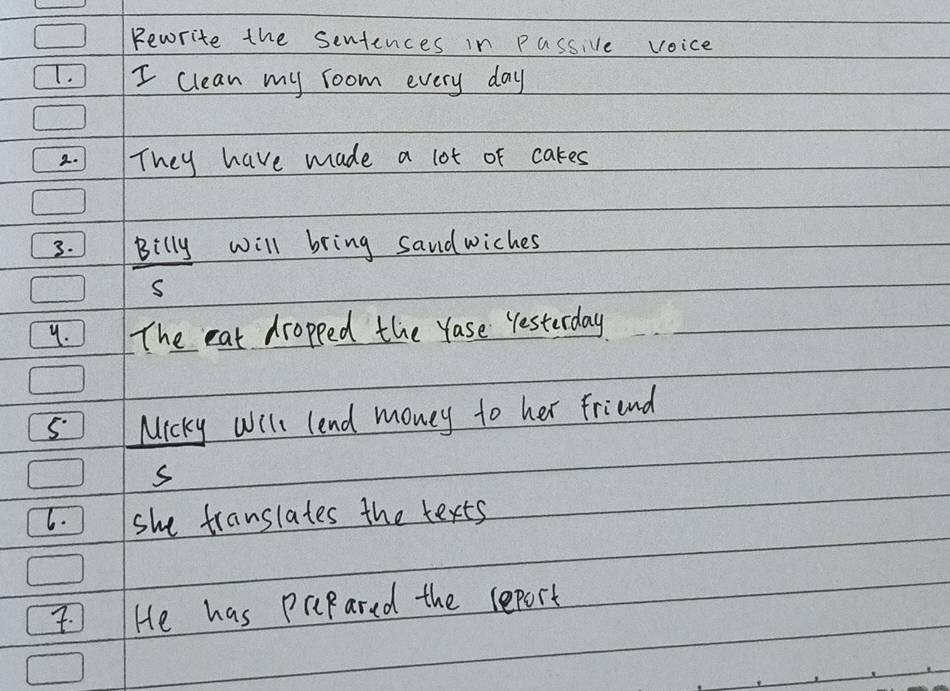 Rewrite the sentences in passive voice
1. I clean my room every day
2. They have made a lot of cakes
3. Billy will bring sandwiches
S
4. The cat dropped the vase yesterday
5. Nicky will lend money to her friend
S
6. she translates the texts
7. He has prepared the report